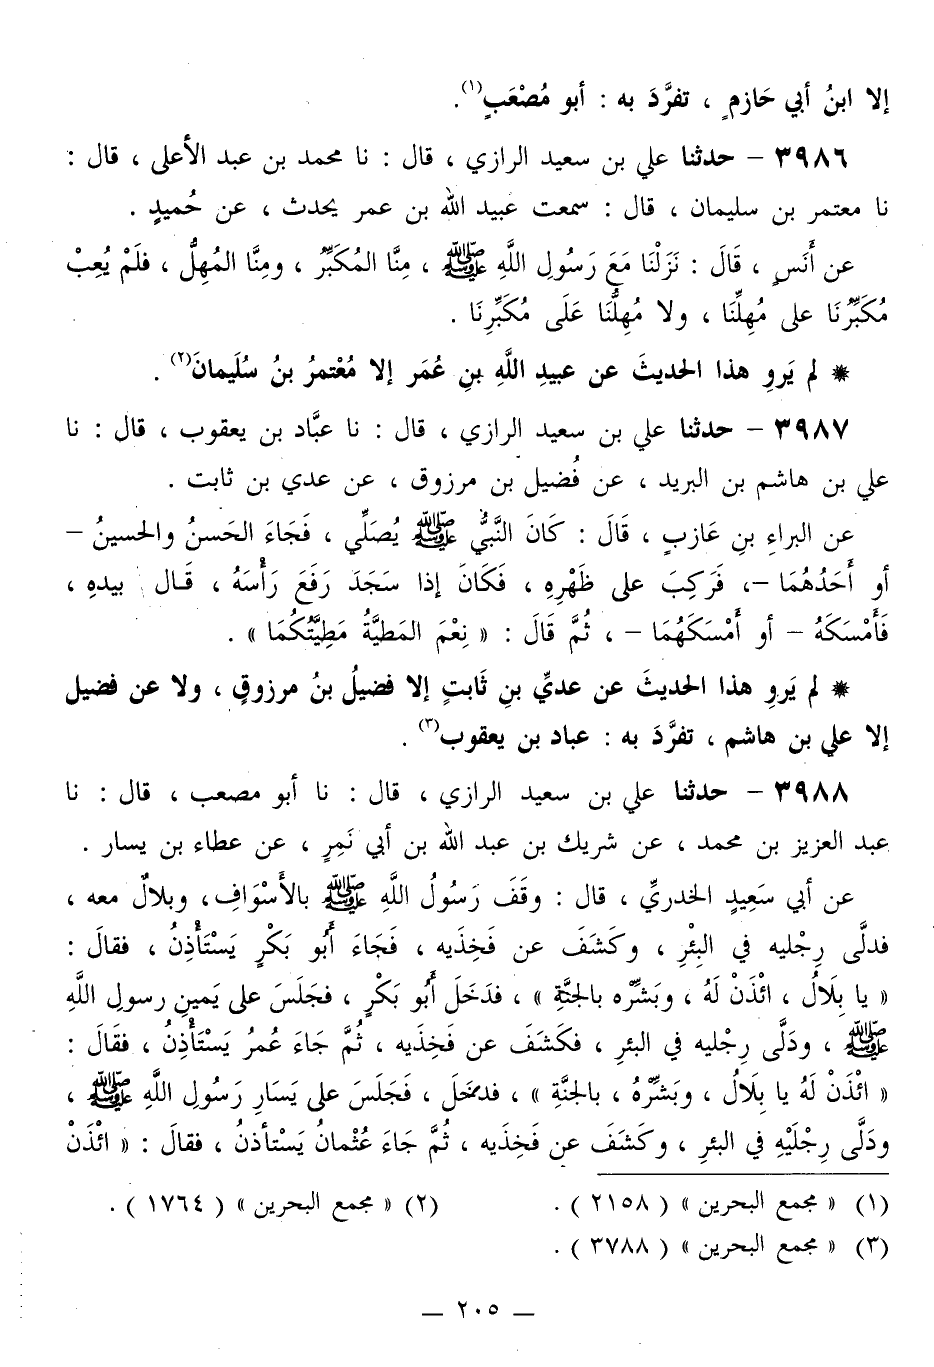 إلا ابنُ أبي حَازمٍ ، تفرَّدَ به : أبو مُصْعَبٍ(١).
٣٩٨٦ – حدثنا علي بن سعيد الرازي ، قال : نا محمد بن عبد الأعلى ، قال :
نا معتمر بن سليمان ، قال : سمعت عبيد الله بن عمر يحدث ، عن حُميدٍ .
عن أَنَسٍ ، قَالَ : نَزَلْنَا مَعَ رَسُولِ اللَّهِ ﷺ ، مِنَّا المُكَبِّرُ ، ومِنَّا المُهِلُّ ، فلَمْ يُعِبْ
مُكَبِّرُنَا على مُهِلِّنَا ، ولا مُهِلُّنَا عَلَى مُكَبِّرِنَا .
* لم يَروِ هذا الحديثَ عن عبيدِ اللَّهِ بنِ عُمَر إلا مُعْتمرُ بنُ سُلَيمانَ(٢).
٣٩٨٧ – حدثنا علي بن سعيد الرازي ، قال : نا عبَّاد بن يعقوب ، قال : نا
علي بن هاشم بن البريد ، عن فُضيل بن مرزوق ، عن عدي بن ثابت .
عن البراءِ بنِ عَازبٍ ، قَالَ : كَانَ النَّبيُّ ﷺ يُصَلِّي ، فَجَاءَ الحَسنُ والحسينُ –
أو أَحَدُهُمَا –، فَرَكِبَ على ظَهْرِهِ ، فَكَانَ إذا سَجَدَ رَفَعَ رَأْسَهُ ، قَـال بيدهِ ،
فَأَمْسَكَهُ – أو أَمْسَكَهُمَا – ، ثُمَّ قَالَ : « نِعْمَ المَطيَّةُ مَطِيَّتُكُمَا » .
* لم يَروِ هذا الحديثَ عن عديِّ بنِ ثَابتٍ إلا فضيلُ بنُ مرزوقٍ ، ولا عن فضيل
إلا علي بن هاشم ، تفرَّدَ به : عباد بن يعقوب(٣) .
٣٩٨٨ – حدثنا علي بن سعيد الرازي ، قال : نا أبو مصعب ، قال : نا
عبد العزيز بن محمد ، عن شريك بن عبد الله بن أبي نَمِرٍ ، عن عطاء بن يسار .
عن أبي سَعِيدٍ الخدريِّ ، قال : وقَفَ رَسُولُ اللَّهِ ﷺ بالأَسْوَافِ، وبلالٌ معه ،
فدلَّى رِجْليه في البِئْرِ ، وكَشَفَ عن فَخِذَيه ، فَجَاءَ أَبُو بَكْرٍ يَسْتَأْذِنُ ، فقالَ :
« يا بِلَالُ ، ائْذَنْ لَهُ ، وبَشِّرْه بالجنَّةِ » ، فدَخَلَ أَبُو بَكْرٍ ، فجَلَسَ على يَمينِ رسولِ اللَّهِ
ﷺ ، ودَلَّى رِجْليه في البئرِ ، فكَشَفَ عن فَخِذَيه ، ثُمَّ جَاءَ عُمرُ يَسْتَأْذِنُ ، فقَالَ :
« ائْذَنْ لَهُ يا بِلَالُ ، وبَشِّرْهُ ، بالجنَّةِ » ، فدخَلَ ، فَجَلَسَ على يَسَارِ رَسُولِ اللَّهِ ﷺ ،
ودَلَّى رِجْلَيْهِ في البئرِ ، وكَشَفَ عن فَخِذَيه ، ثُمَّ جَاءَ عُثْمانُ يَسْتأذنُ ، فقالَ : « ائْذَنْ
(١) « مجمع البحرين » ( ٢١٥٨ ) . (٢) « مجمع البحرين » ( ١٧٦٤ ) .
(٣) « مجمع البحرين » ( ٣٧٨٨ ) .
– ٢٠٥ –